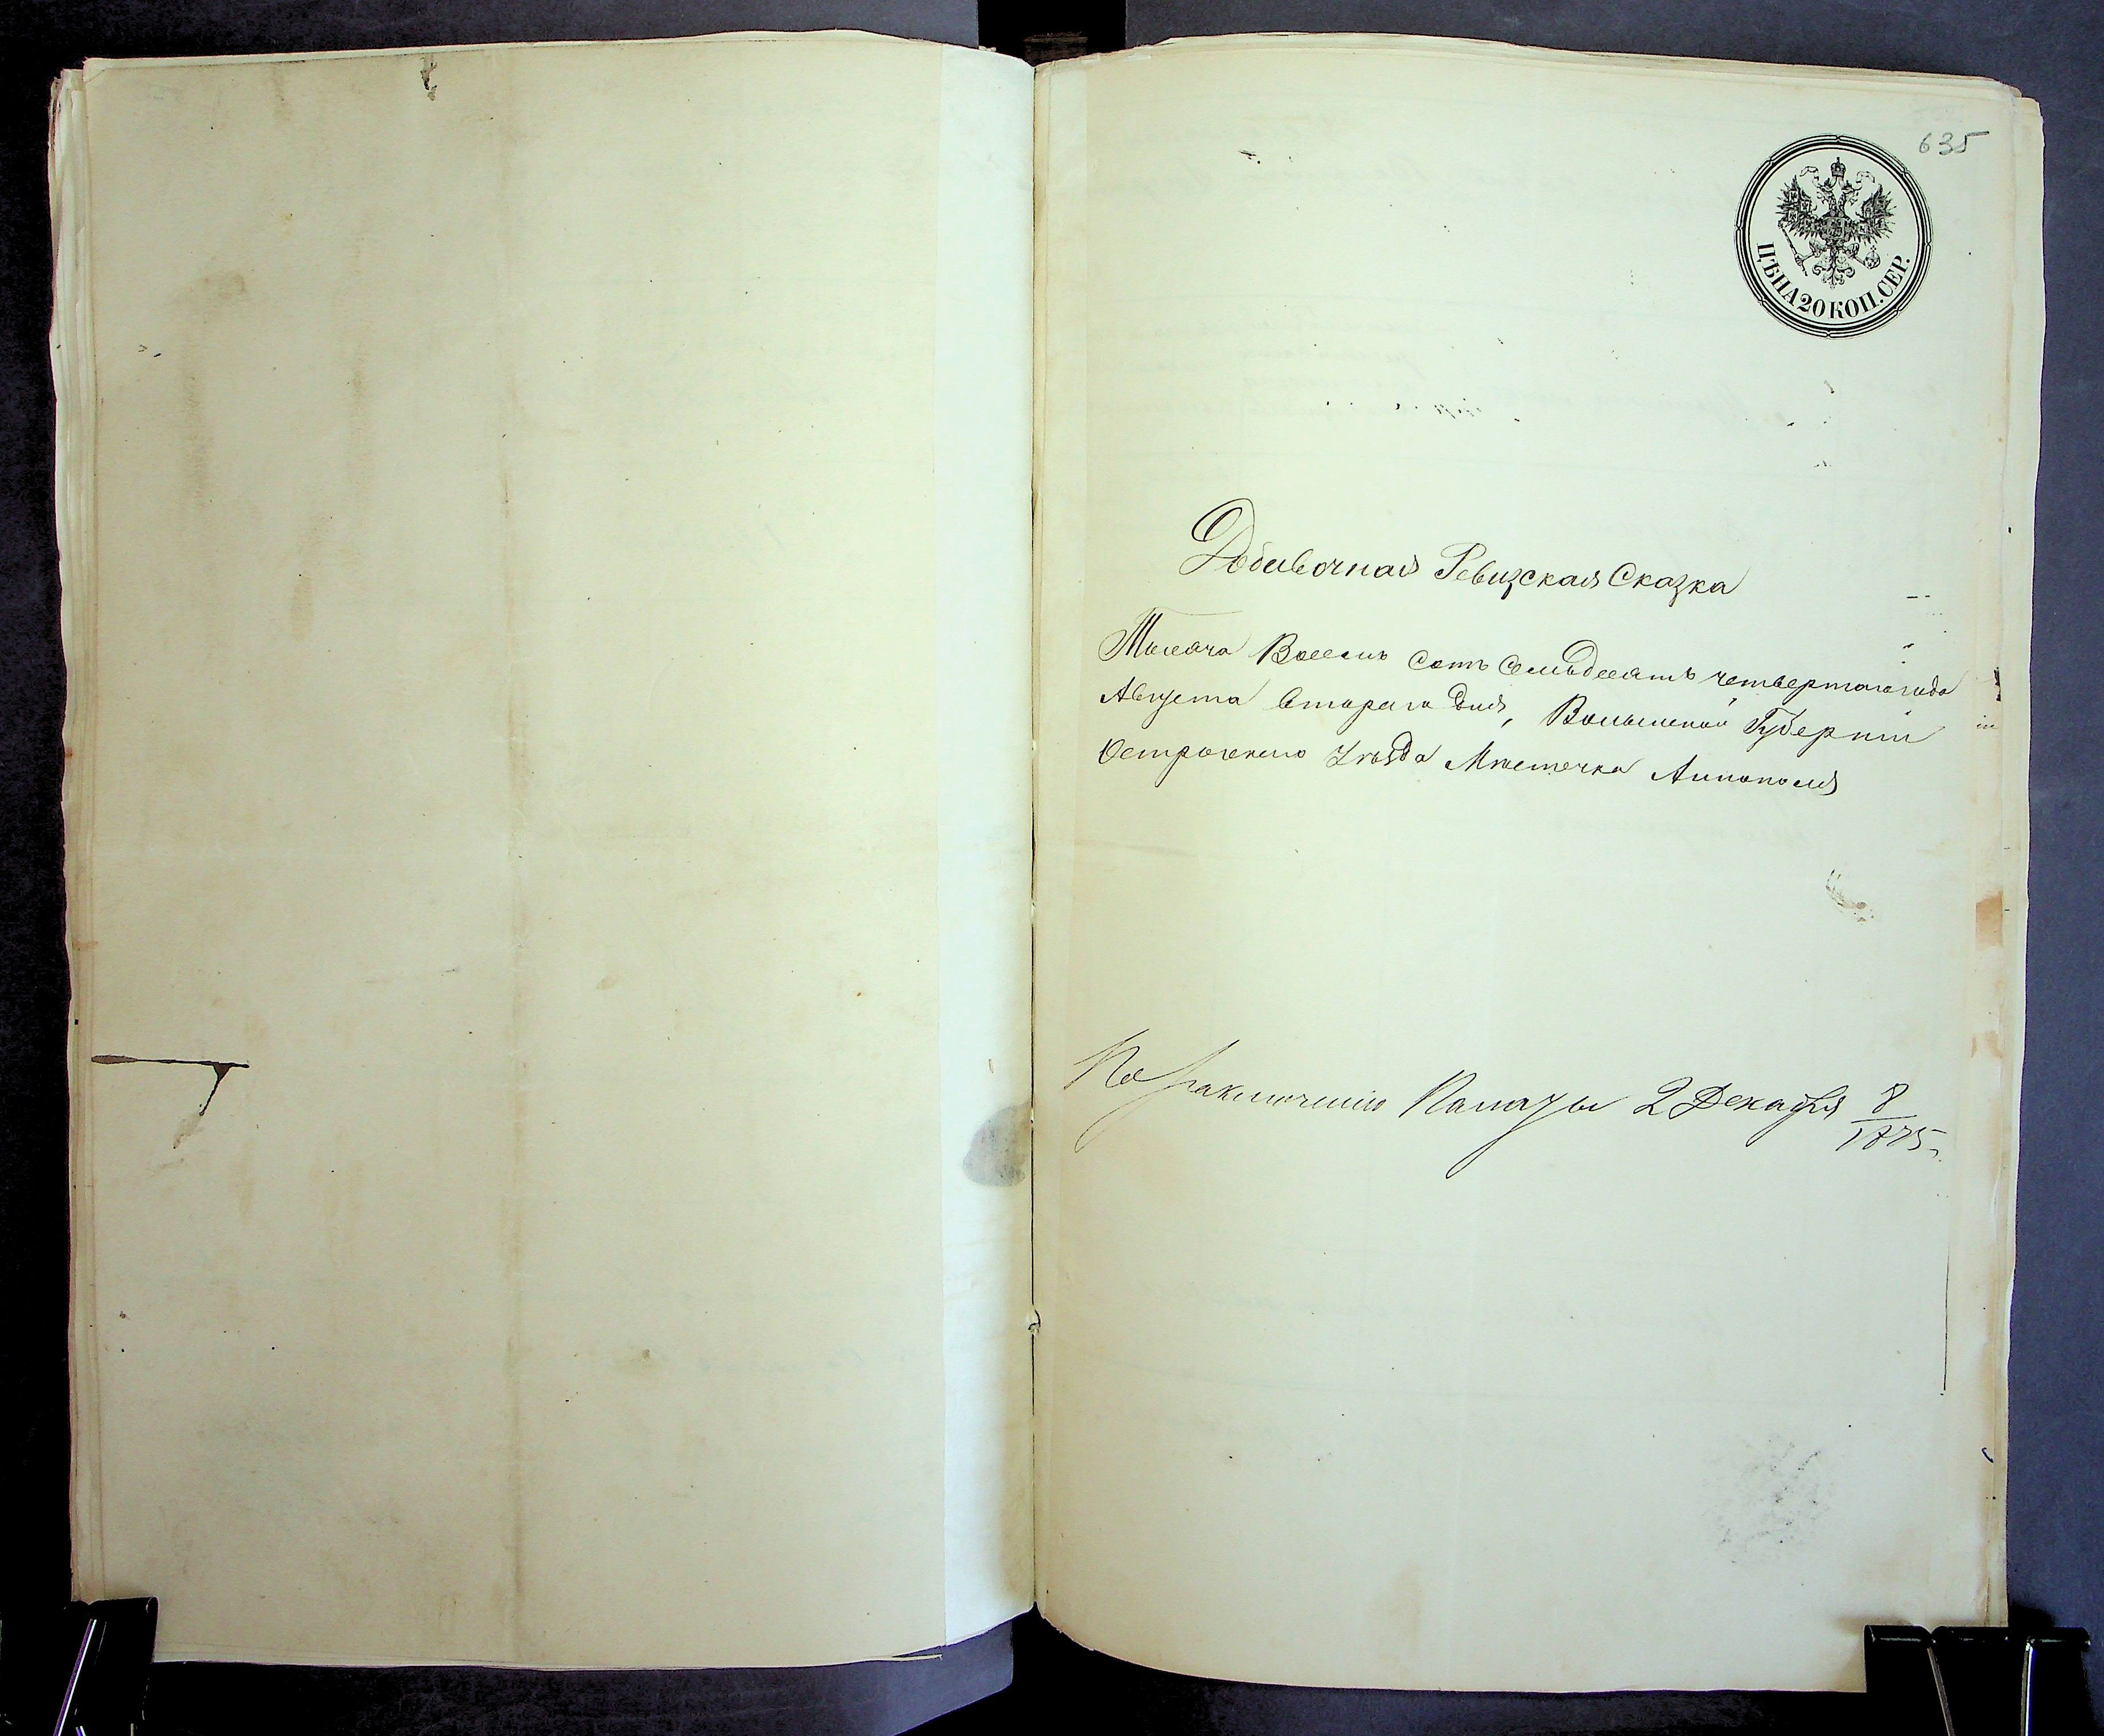 635
ЦѢНА 20 КОП. СЕР.
Добавочная Ревизская Сказка
Тысяча Восемь сотъ семьдесятъ четвертаго года
Августа втораго дня, Волынской Губерніи
Острожскаго Уѣзда Мѣстечка Аннополя
По заключенію Палаты 2 Декабря 8
1875